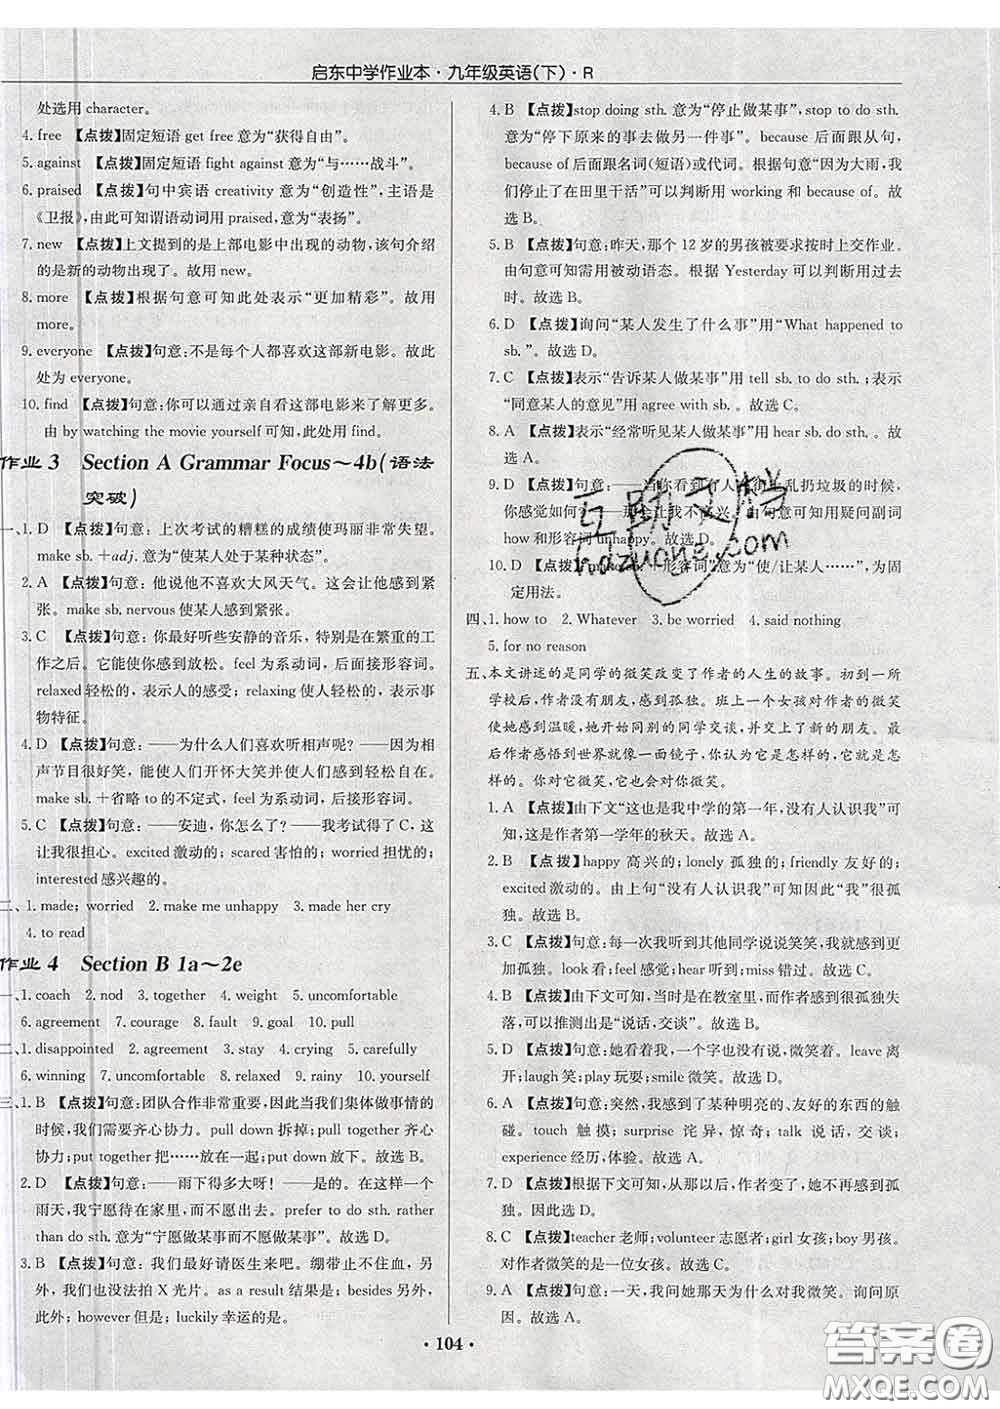 启东中学作业本·九年级英语(下)·R
处选用 character.
4. free 【点拨】固定短语 get free 意为“获得自由”。
5. against 【点拨】固定短语 fight against 意为“与……战斗”。
6. praised 【点拨】句中宾语 creativity 意为“创造性”,主语是
《卫报》,由此可知谓语动词用 praised,意为“表扬”。
7. new 【点拨】上文提到的是上部电影中出现的动物,该句介绍
的是新的动物出现了。故用 new。
8. more 【点拨】根据句意可知此处表示“更加精彩”。故用
more。
9. everyone 【点拨】句意:不是每个人都喜欢这部新电影。故此
处为 everyone。
10. find 【点拨】句意:你可以通过亲自看这部电影来了解更多。
由 by watching the movie yourself 可知,此处用 find。
作业 3 Section A Grammar Focus～4b(语法
突破)
一、1. D 【点拨】句意:上次考试的糟糕的成绩使玛丽非常失望。
make sb. +adj. 意为“使某人处于某种状态”。
2. A 【点拨】句意:他说他不喜欢大风天气。这会让他感到紧
张。make sb. nervous 使某人感到紧张。
3. C 【点拨】句意:你最好听些安静的音乐,特别是在繁重的工
作之后。它能使你感到放松。feel 为系动词,后面接形容词。
relaxed 轻松的,表示人的感受;relaxing 使人轻松的,表示事
物特征。
4. D 【点拨】句意:——为什么人们喜欢听相声呢?——因为相
声节目很好笑,能使人们开怀大笑并感到轻松自在。make
sb. +省略 to 的不定式,feel 为系动词,后接形容词。
5. C 【点拨】句意:——安迪,你怎么了?——我考试得了 C,这
让我很担心。excited 激动的;scared 害怕的;worried 担忧的;
interested 感兴趣的。
二、1. made; worried 2. make me unhappy 3. made her cry
4. to read
作业 4 Section B 1a～2e
一、1. coach 2. nod 3. together 4. weight 5. uncomfortable
6. agreement 7. courage 8. fault 9. goal 10. pull
二、1. disappointed 2. agreement 3. stay 4. crying 5. carefully
6. winning 7. uncomfortable 8. relaxed 9. rainy 10. yourself
三、1. B 【点拨】句意:团队合作非常重要,因此当我们集体做事情的
时候,我们需要齐心协力。pull down 拆掉;pull together 齐心
协力;put together 把……放在一起;put down 放下。故选 B。
2. D 【点拨】句意:——雨下得多大呀!——是的。在这样一个
雨天,我宁愿待在家里,而不愿出去。prefer to do sth. rather
than do sth. 意为“宁愿做某事而不愿做某事”。故选 D。
3. B 【点拨】句意:我们最好请医生来吧。绷带止不住血。另
外,我们也没法拍 X 光片。as a result 结果是;besides 另外,
此外;however 但是;luckily 幸运的是。
4. B 【点拨】stop doing sth. 意为“停止做某事”,stop to do sth.
意为“停下原来的事去做另一件事”。because 后面跟从句,
because of 后面跟名词(短语)或代词。根据句意“因为大雨,我
们停止了在田里干活”可以判断用 working 和 because of。故
选 B。
5. B 【点拨】句意:昨天,那个 12 岁的男孩被要求按时上交作业。
由句意可知需用被动语态。根据 Yesterday 可以判断用过去
时。故选 B。
6. D 【点拨】询问“某人发生了什么事”用“What happened to
sb. ”。故选 D。
7. C 【点拨】表示“告诉某人做某事”用 tell sb. to do sth.;表示
“同意某人的意见”用 agree with sb. 。故选 C。
8. A 【点拨】表示“经常听见某人做某事”用 hear sb. do sth.。
故选 A。
9. D 【点拨】句意:——当你看到有人在街上乱扔垃圾的时候,
你感觉如何?——那会让我不高兴。由句意可知用疑问副词
how 和形容词 unhappy。故选 D。
10. D 【点拨】“make sb. +形容词”意为“使/让某人……”,为固
定用法。
四、1. how to 2. Whatever 3. be worried 4. said nothing
5. for no reason
五、本文讲述的是同学的微笑改变了作者的人生的故事。初到一所
学校后,作者没有朋友,感到孤独。班上一个女孩对作者的微笑
使她感到温暖,她开始同别的同学交谈,并交上了新的朋友。最
后作者感悟到世界就像一面镜子,你认为它是怎样的,它就是怎
样的。你对它微笑,它也会对你微笑。
1. A 【点拨】由下文“这也是我中学的第一年,没有人认识我”可
知,这是作者第一学年的秋天。故选 A。
2. B 【点拨】happy 高兴的;lonely 孤独的;friendly 友好的;
excited 激动的。由上句“没有人认识我”可知因此“我”很孤
独。故选 B。
3. C 【点拨】句意:每一次我听到其他同学说说笑笑,我就感到更
加孤独。look 看;feel 感觉;hear 听到;miss 错过。故选 C。
4. B 【点拨】由下文可知,当时是在教室里,而作者感到很孤独失
落,可以推测出是“说话,交谈”。故选 B。
5. D 【点拨】句意:她看着我,一个字也没有说,微笑着。leave 离
开;laugh 笑;play 玩耍;smile 微笑。故选 D。
6. A 【点拨】句意:突然,我感到了某种明亮的、友好的东西的触
碰。touch 触摸;surprise 诧异,惊奇;talk 说话,交谈;
experience 经历,体验。故选 A。
7. D 【点拨】根据下文可知,从那以后,作者变了,她不再感到孤
独。因此选 D。
8. C 【点拨】teacher 老师;volunteer 志愿者;girl 女孩;boy 男孩。
对作者微笑的是一位女孩。故选 C。
9. A 【点拨】句意:一天,我问她那天为什么对我微笑。询问原
因。故选 A。
· 104 ·
互助文档
hdzuoye.com
答案圈
MXQE.COM